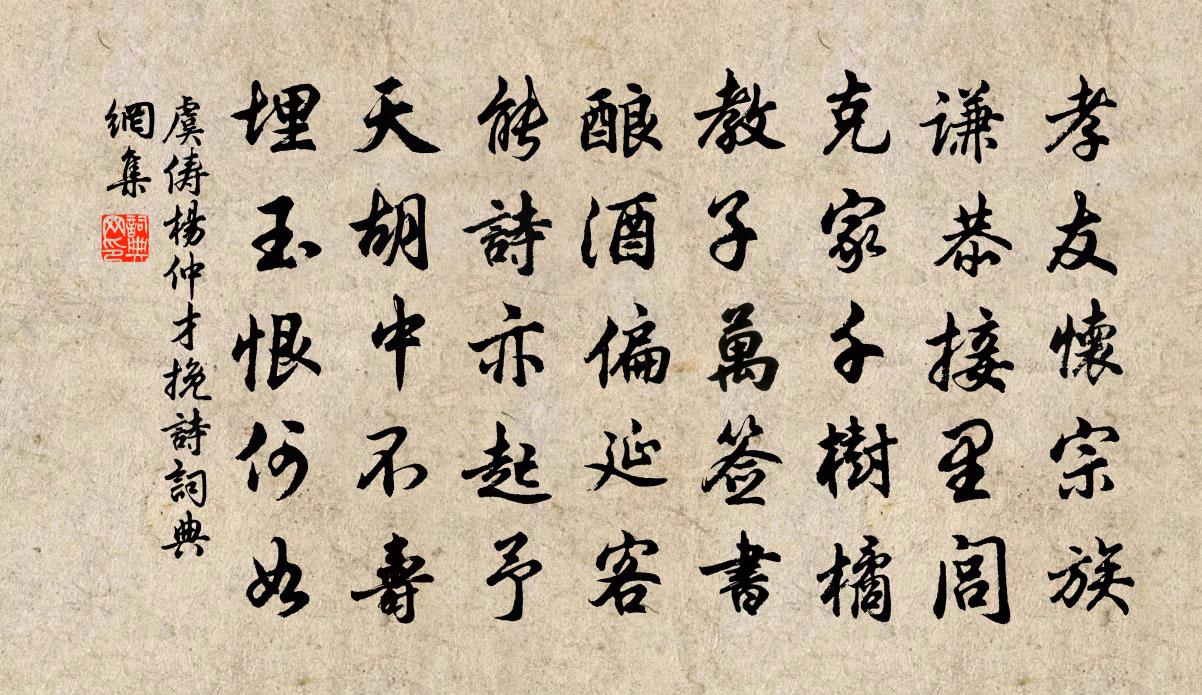 孝友懷宗族
谦恭接里閭
克家千樹橘
教子萬签書
酿酒偏延客
能詩亦起予
天胡中不壽
埋玉恨何如
虞俦楊仲才挽詩詞典
網集
詞典
网印